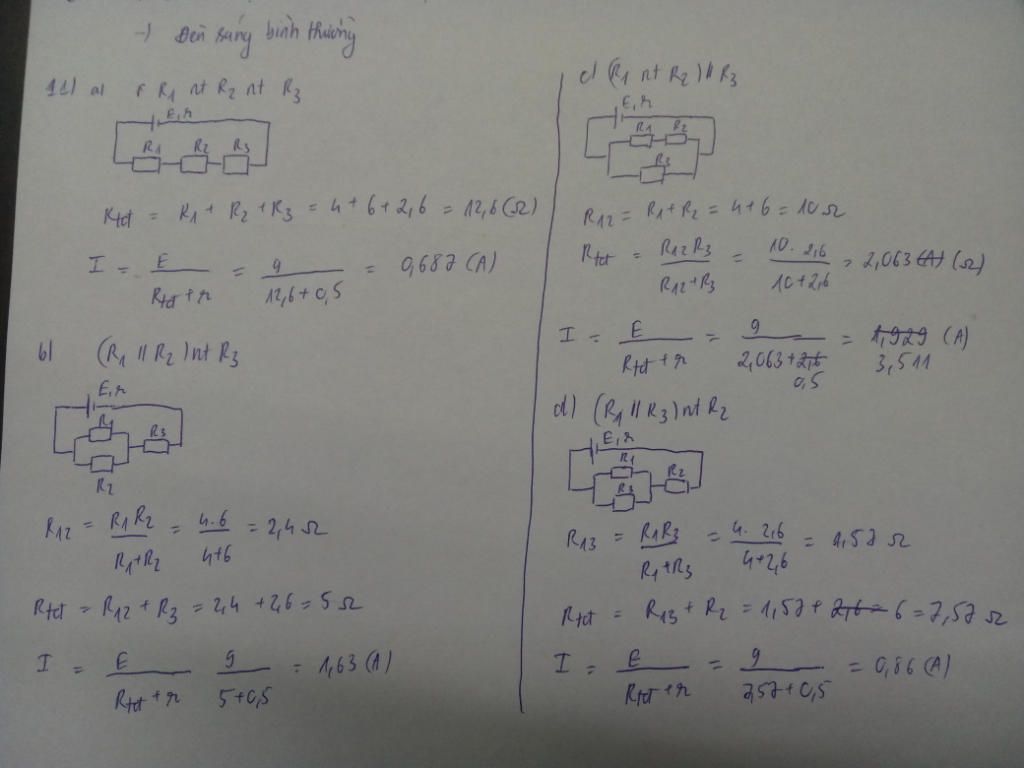 -) Đèn sáng bình thường
11) a) R1 nt R2 nt R3
E,r
R1 R2 R3
Rtđ = R1 + R2 + R3 = 4 + 6 + 2,6 = 12,6 (Ω)
I = E / (Rtđ + r) = 9 / (12,6 + 0,5) = 0,687 (A)
b) (R1 // R2) nt R3
E,r
R1
R3
R2
R12 = R1R2 / (R1+R2) = 4.6 / (4+6) = 2,4 Ω
Rtđ = R12 + R3 = 2,4 + 2,6 = 5 Ω
I = E / (Rtđ + r) 9 / (5+0,5) = 1,63 (A)
c) (R1 nt R2) // R3
E,r
R1 R2
R3
R12 = R1+R2 = 4+6 = 10 Ω
Rtđ = R12 R3 / (R12+R3) = 10. 2,6 / (10+2,6) = 2,063 (A) (Ω)
I = E / (Rtđ + r) = 9 / (2,063 + 2,6 0,5) = 1,929 (A)
3,511
d) (R1 // R3) nt R2
E,r
R1
R2
R3
R13 = R1R3 / (R1+R3) = 4. 2,6 / (4+2,6) = 1,57 Ω
Rtđ = R13 + R2 = 1,57 + 2,6 = 6 = 7,57 Ω
I = E / (Rtđ + r) = 9 / (7,57+0,5) = 0,86 (A)